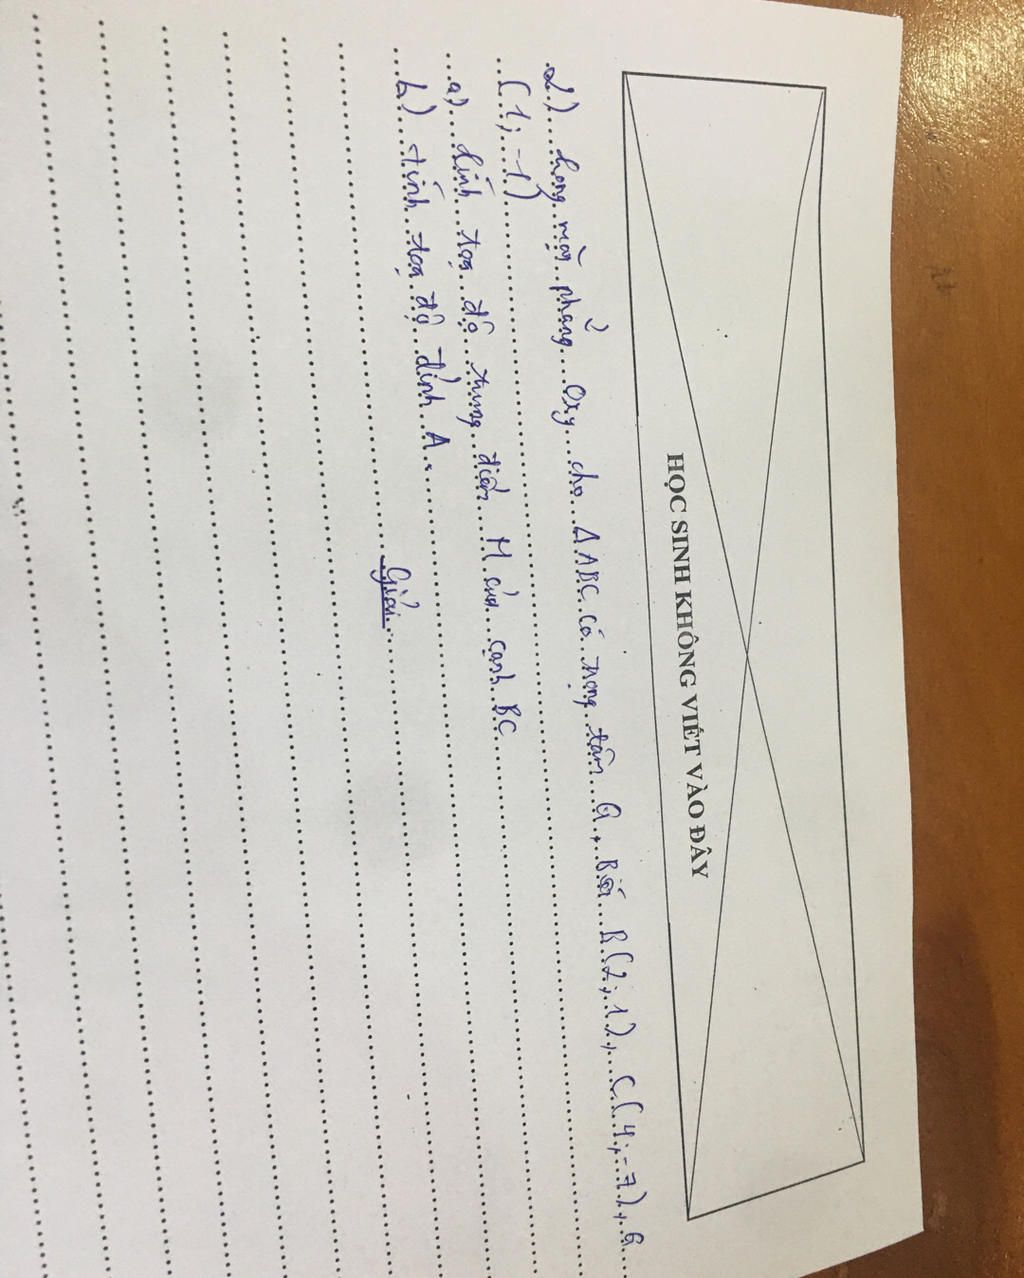 HỌC SINH KHÔNG VIẾT VÀO ĐÂY
2) Trong mặt phẳng Oxy cho ΔABC có trọng tâm G, Biết B(2; 1), C(4; -7), G
(1; -1)
a) tính tọa độ trung điểm M của cạnh BC
b) tính tọa độ đỉnh A.
Giải